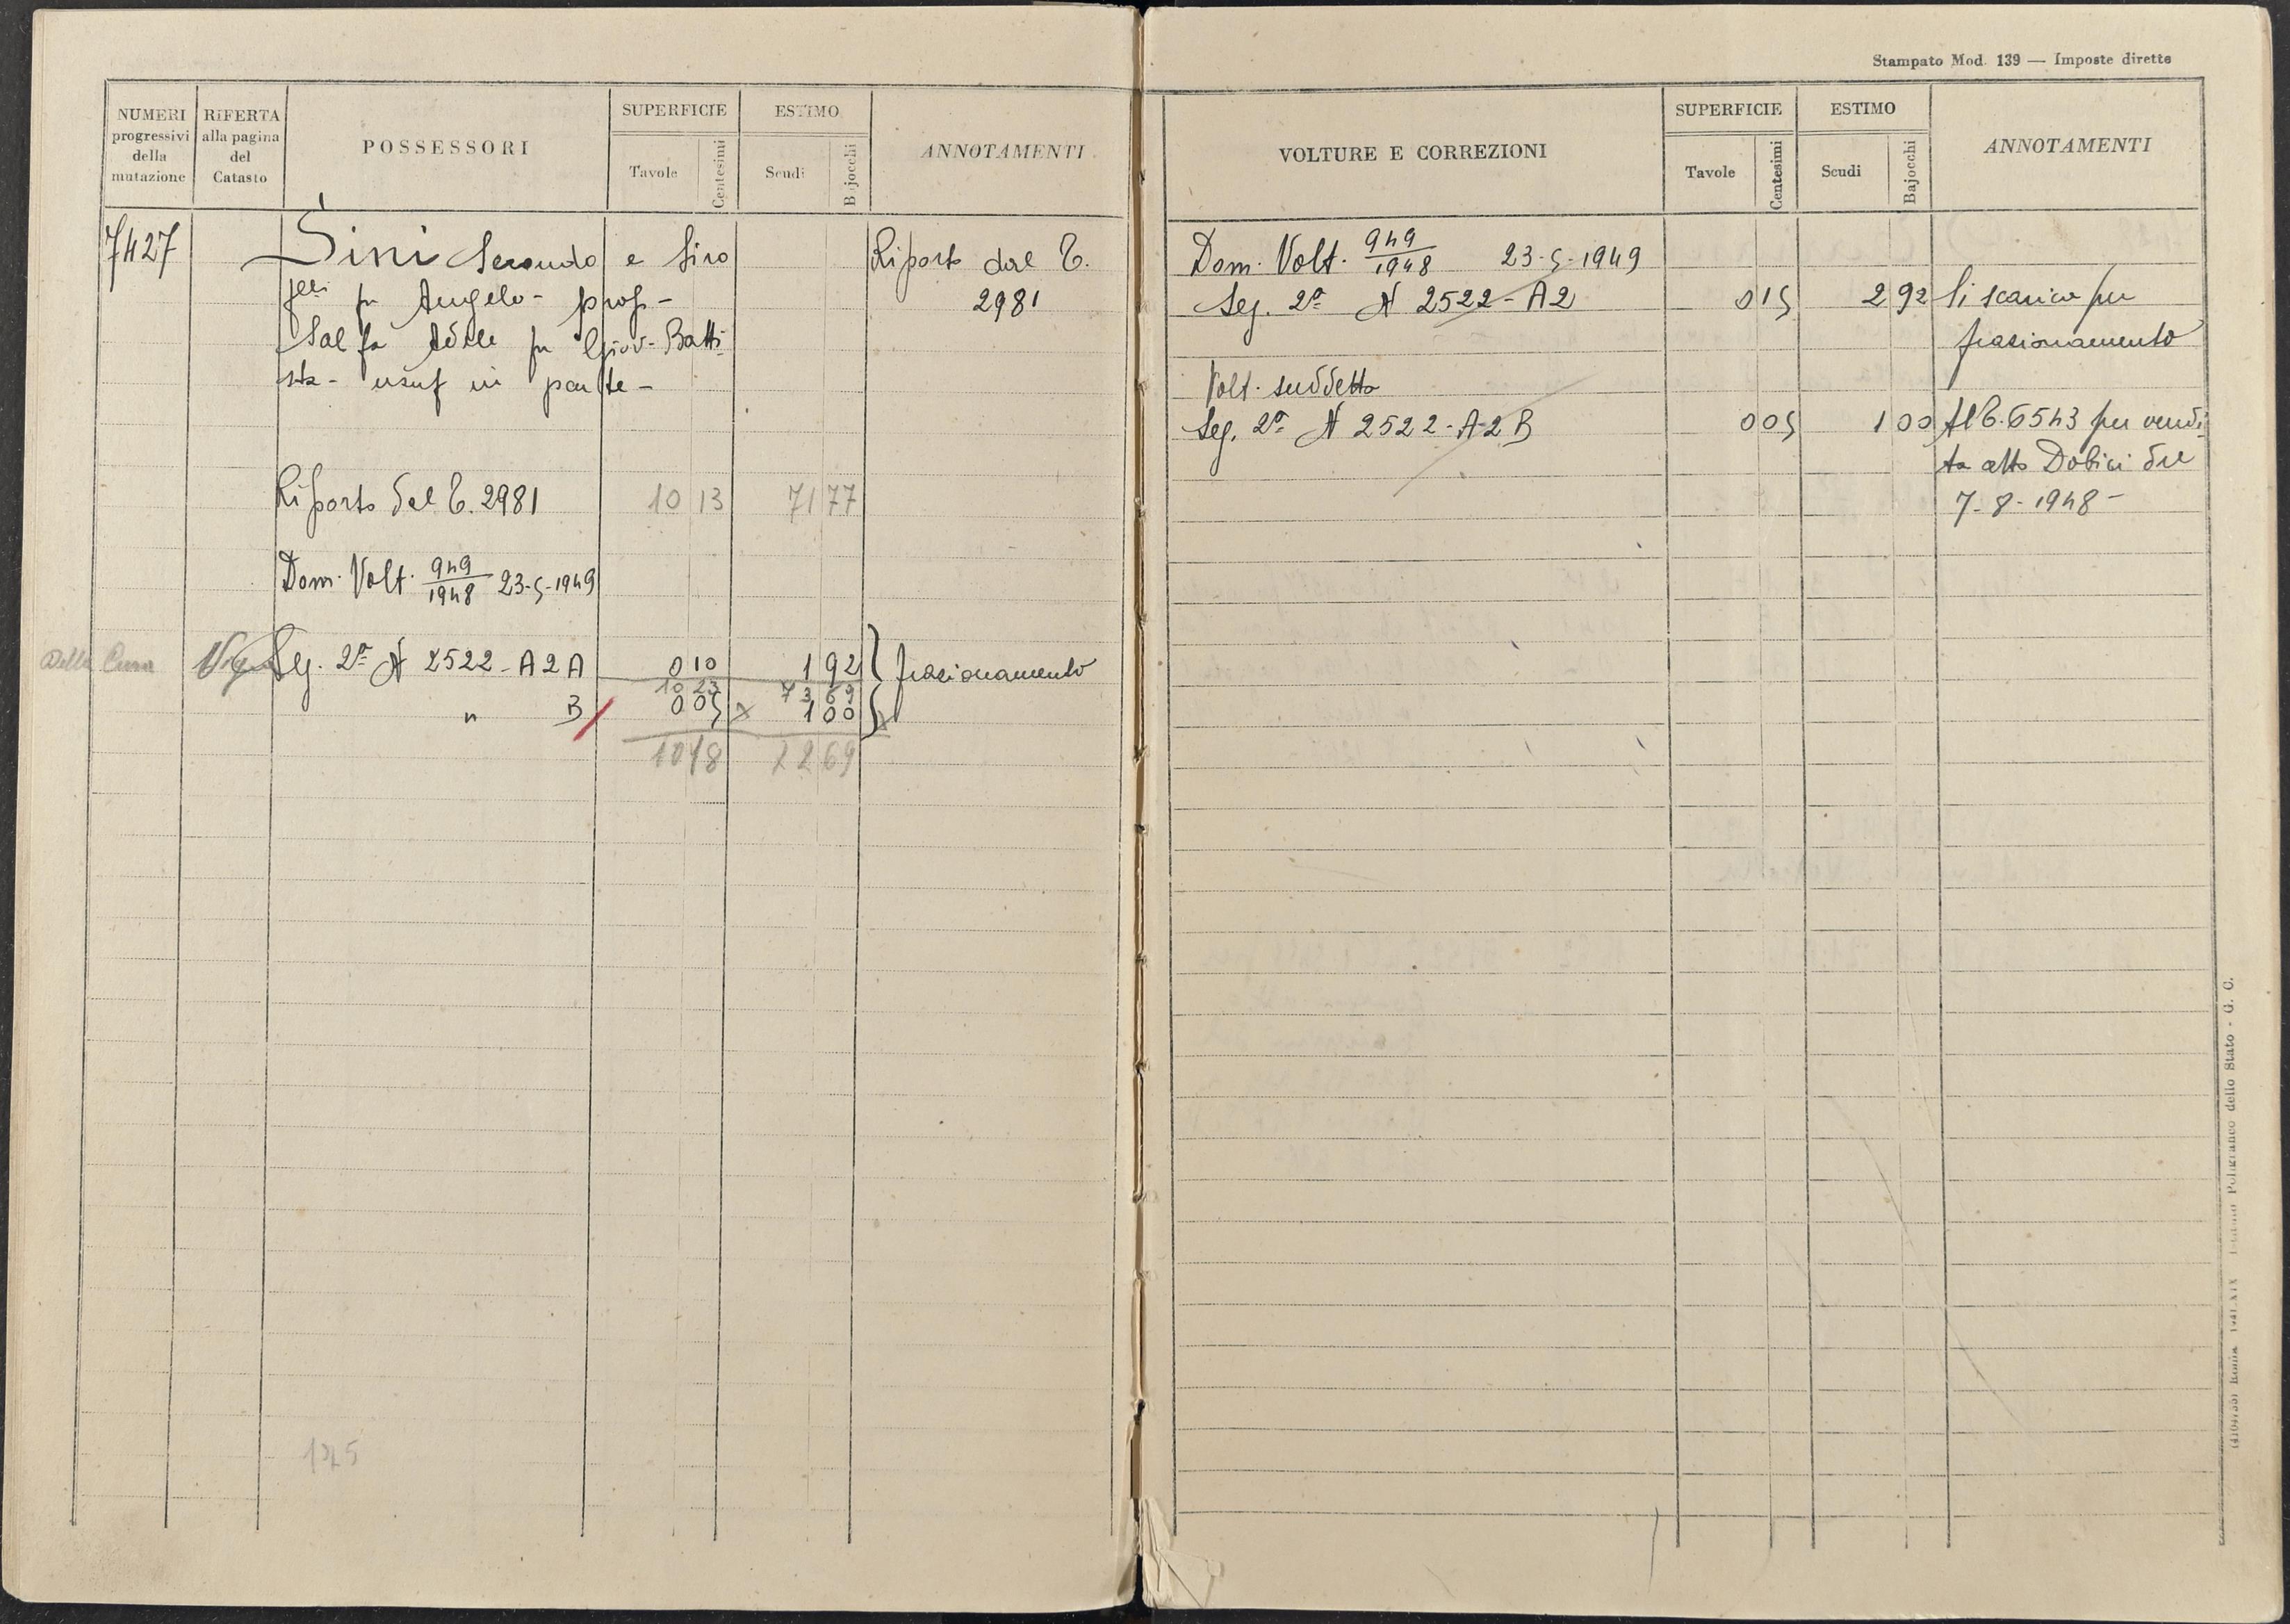 NUMERI progressivi della mutazione
RIFERTA alla pagina del Catasto
POSSESSORI
SUPERFICIE
Tavole
Centesimi
ESTIMO
Scudi
Bajocchi
ANNOTAMENTI
7427
Sini Secondo e Siro
flli fu Angelo - prop -
fu Giov. Batti
sta - usuf in parte -
Riporto dal C.
2981
Riporto dal C. 2981 10 13 71 77
Dom. Volt. 949/1948 23-5-1949
Della Cura
Seg. 2ª N 2522 - A 2 A 0 10 1 92 frazionamento
10 23 73 69
" B 0 05 1 00
10 18 72 69
125
Stampato Mod. 139 — Imposte dirette
VOLTURE E CORREZIONI
SUPERFICIE
Tavole
Centesimi
ESTIMO
Scudi
Bajocchi
ANNOTAMENTI
Dom. Volt. 949/1948 23-5-1949
Seg. 2ª N 2522 - A 2 0 15 2 92 Si scarica per
frazionamento
Volt. suddetta
Seg. 2ª N 2522 - A-2 B 0 05 1 00 Al C. 6543 per vendi
ta atto Dobici del
7-8-1948 -
Poligrafico dello Stato - G. C.